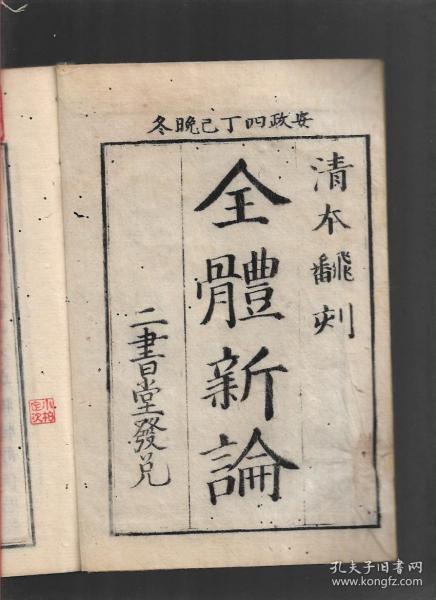 安政四丁已晩冬
清本飜刻
全體新論
二書堂發兌
孔夫子旧书网
www.kongfz.com